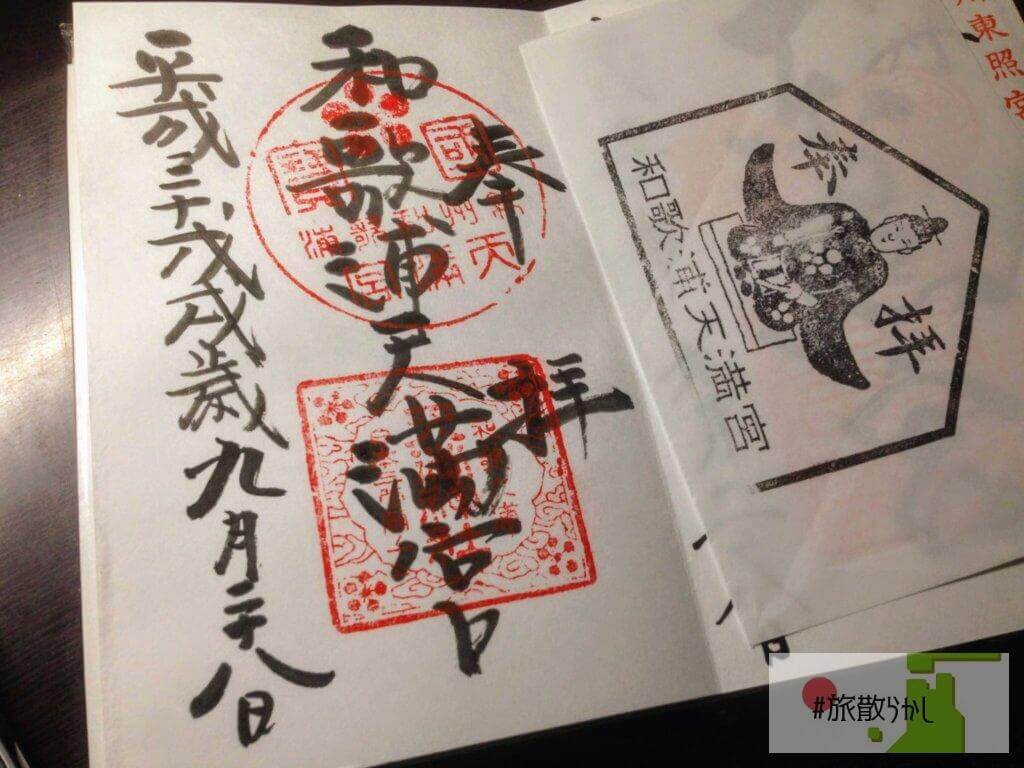 東照宮
奉拝
和歌浦天満宮
奉拝
和歌浦天満宮
平成三十戊戌歳九月二十八日
#旅散らかし